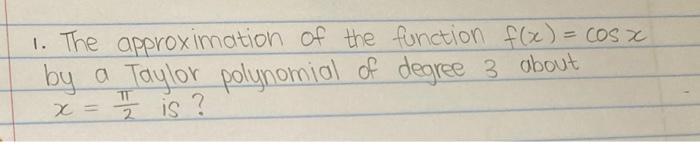 1. The approximation of the function f(x) = cos x
by a Taylor polynomial of degree 3 about
x = π/2 is ?